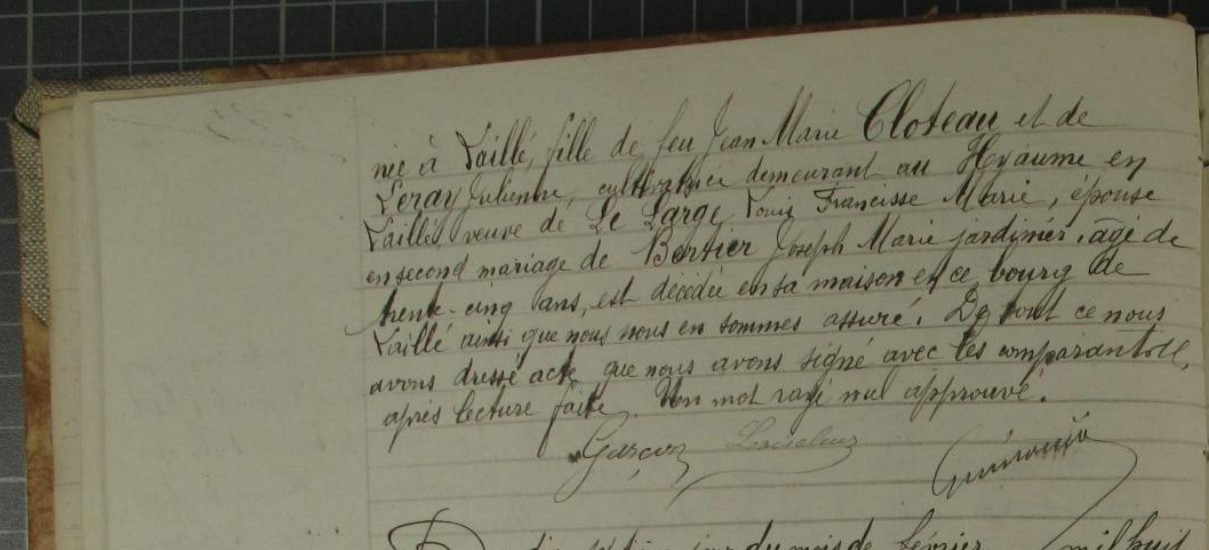 née à Laillé, fille de feu Jean Marie Cloteau et de
Leray Julienne, cultivatrice demeurant au Hyaume en
Laillé, veuve de Le Large Louis Francisse Marie, épouse
en second mariage de Bertier Joseph Marie jardinier, âgé de
trente-cinq ans, est décédée en sa maison en ce bourg de
Laillé ainsi que nous nous en sommes assuré. De tout ce nous
avons dressé acte que nous avons signé avec les comparants
après lecture faite. Un mot rayé nul approuvé.
Garçon
jour du mois de février mil huit